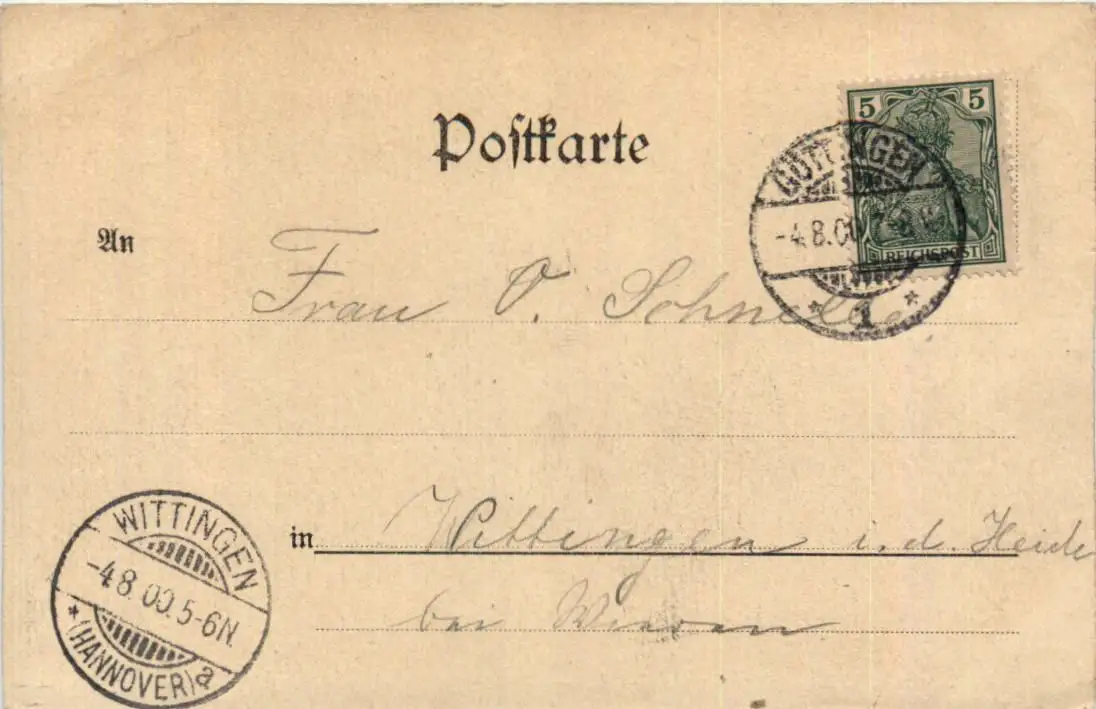 Postkarte
5 5
REICHSPOST
GÖTTINGEN
-4.8.00. 7-8 V.
* 1 *
An
Frau O. Schnelle
in Wittingen i. d. Heide
bei Wieren
WITTINGEN
-4.8.00. 5-6N.
* (HANNOVER) a